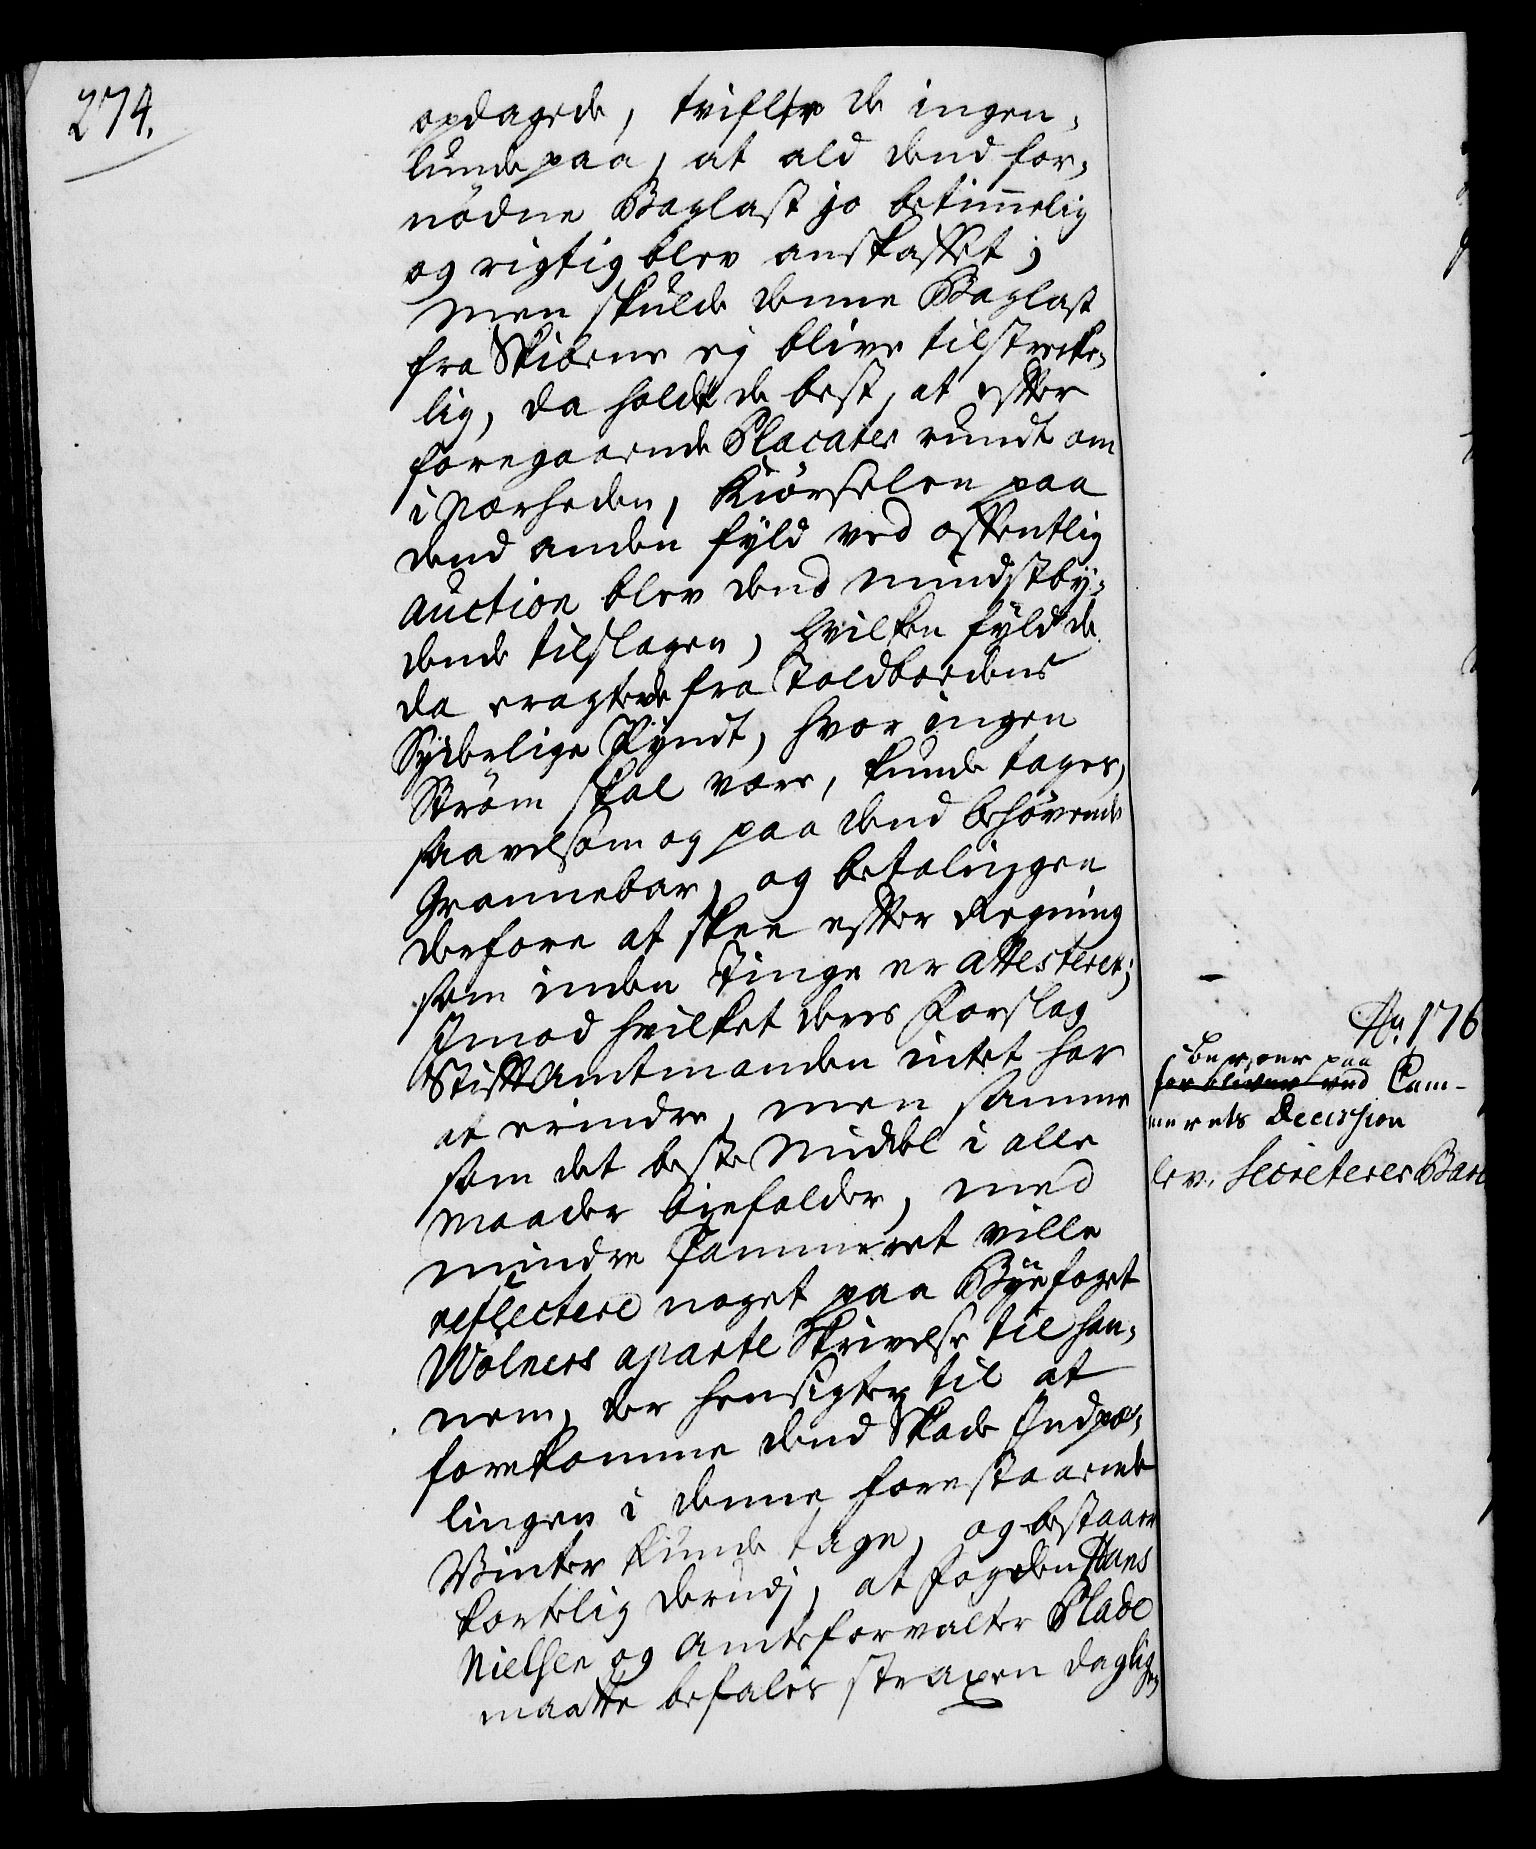 274.
opdagede, tvifler de ingen-
lunde paa, at ald dend for-
nödne Baglast jo betimelig
og rigtig blev anskaffet;
men skulde denne Baglast
fra Skibene ej blive tilstrecke-
lig, da holdt de best, at efter
foregaaende Placater rundt om
i Nærheden, Kiörselen paa
dend anden fyld ved offentlig
auction blev dend mindstby-
dende tilslagen, hvilken fyld de
da eragtede fra Toldboedens
Sydelige Pÿndt, hvor ingen
Ström skal være, kunde tages,
saavelsom og paa dend behövende
Grannebar, og betalingen
derfore at skee efter Regning
som inden Tinge er attesteret;
Imod hvilket deres Forslag
StiftAmtmanden intet har
at erindre, men samme
som det beste Middel i alle
maader biefalder, med
mindre Cammeret ville
reflectere noget paa Byefoget
Wölners aparte Skrivelse til han-
nem, der hensigter til at
forekomme dend Skade Indpæ-
lingen i denne forestaaende
Vinter kunde tage, og bestaaer
kortelig derudj, at fogden Hans
Nielsen og Amtsforvalter Plade
maatte befales strax en daglig
No. 176
beroer paa
forbliver ved Cam-
merets Decission
lev. Secreterer